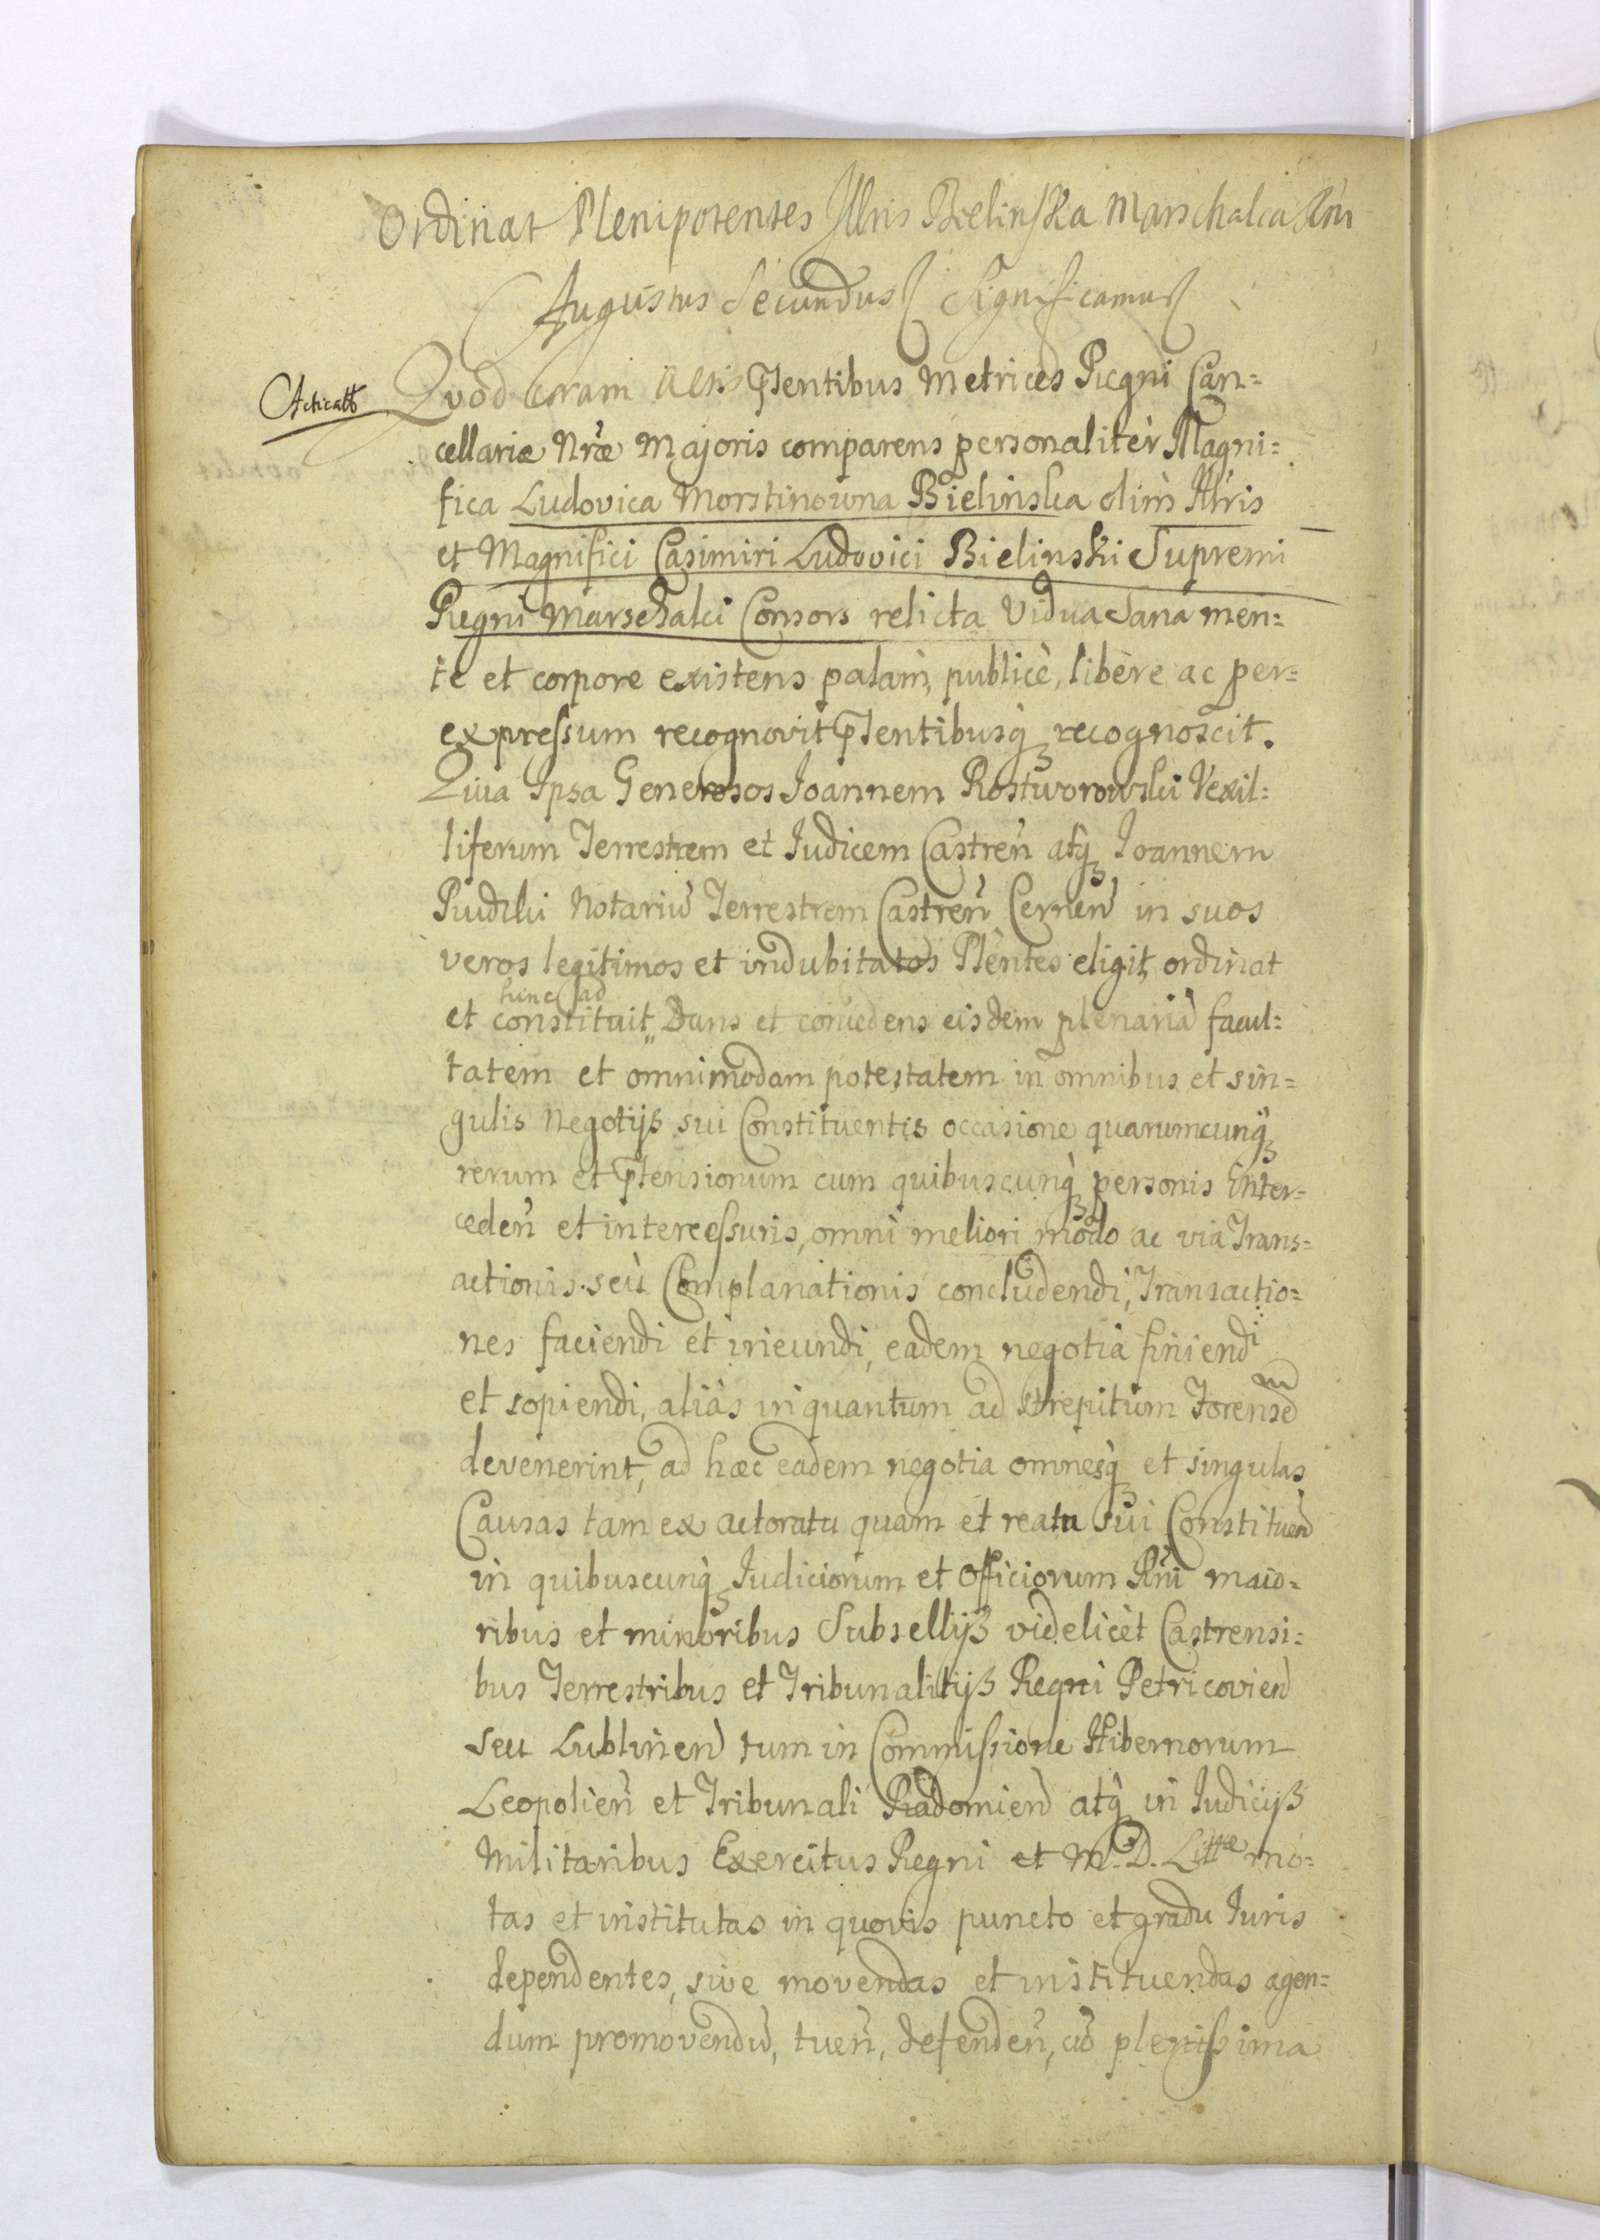 Ordinat Plenipotentes Illris Bielinska Marschalca Rni
Augustus Secundus Significamus
Acticatt
Quod Coram Actis Pntentibus Metrices Regni Can=
cellariæ Nræ Majoris comparens personalitèr Magni=
fica Ludovica Morstinowna Bielinska olim Illris
et Magnifici Casimiri Ludovici Bielinski Supremi
Regni Marschalci Consors relicta Vidua Sana men=
te et corpore existens palam, publicè, libère ac per=
expressum recognovit Pntentibusq recognoscit.
Quia Ipsa Generosos Joannem Rostworowski Vexil=
liferum Terrestrem et Iudicem Castren atq Joannem
Rudzki Notariu Terrestrem Castren Cernen in suos
veros legitimos et indubitatos Plentes eligit, ordinat
hunc ad
et constituit, Dans et concedens eisdem plenaria facul=
tatem et omnimodam potestatem in omnibus et sin=
gulis Negotijs sui Constituentis occasione quarumcunq
rerum et Ptensionum cum quibuscunq personis inter=
ceden et intercessuris, omni meliori modo ac via Trans=
actionis seù Complanationis concludendi, Transactio=
nes faciendi et ineundi, eadem negotia finiendi
et sopiendi, aliàs inquantum ad strepitum Forensem
devenerint, ad hæc eadem negotia omnesq et singulas
Causas tam ex actoratu quam et reatu sui Constituen
in quibuscunq Iudiciorum et Officiorum Rni maio=
ribus et minoribus Subsellijs videlicèt Castrensi=
bus Terrestribus et Tribunalitijs Regni Petricovien
seu Lublinen tum in Commissione Hibernorum
Leopolien et Tribunali Radomien atq in Iudicijs
Militaribus Exercitus Regni et M. D. Littæ mo=
tas et institutas in quovis puncto et gradu Iuris
dependentes, sive movendas et instituendas agen=
dum promovendu, tuen, defenden, cu plenissima